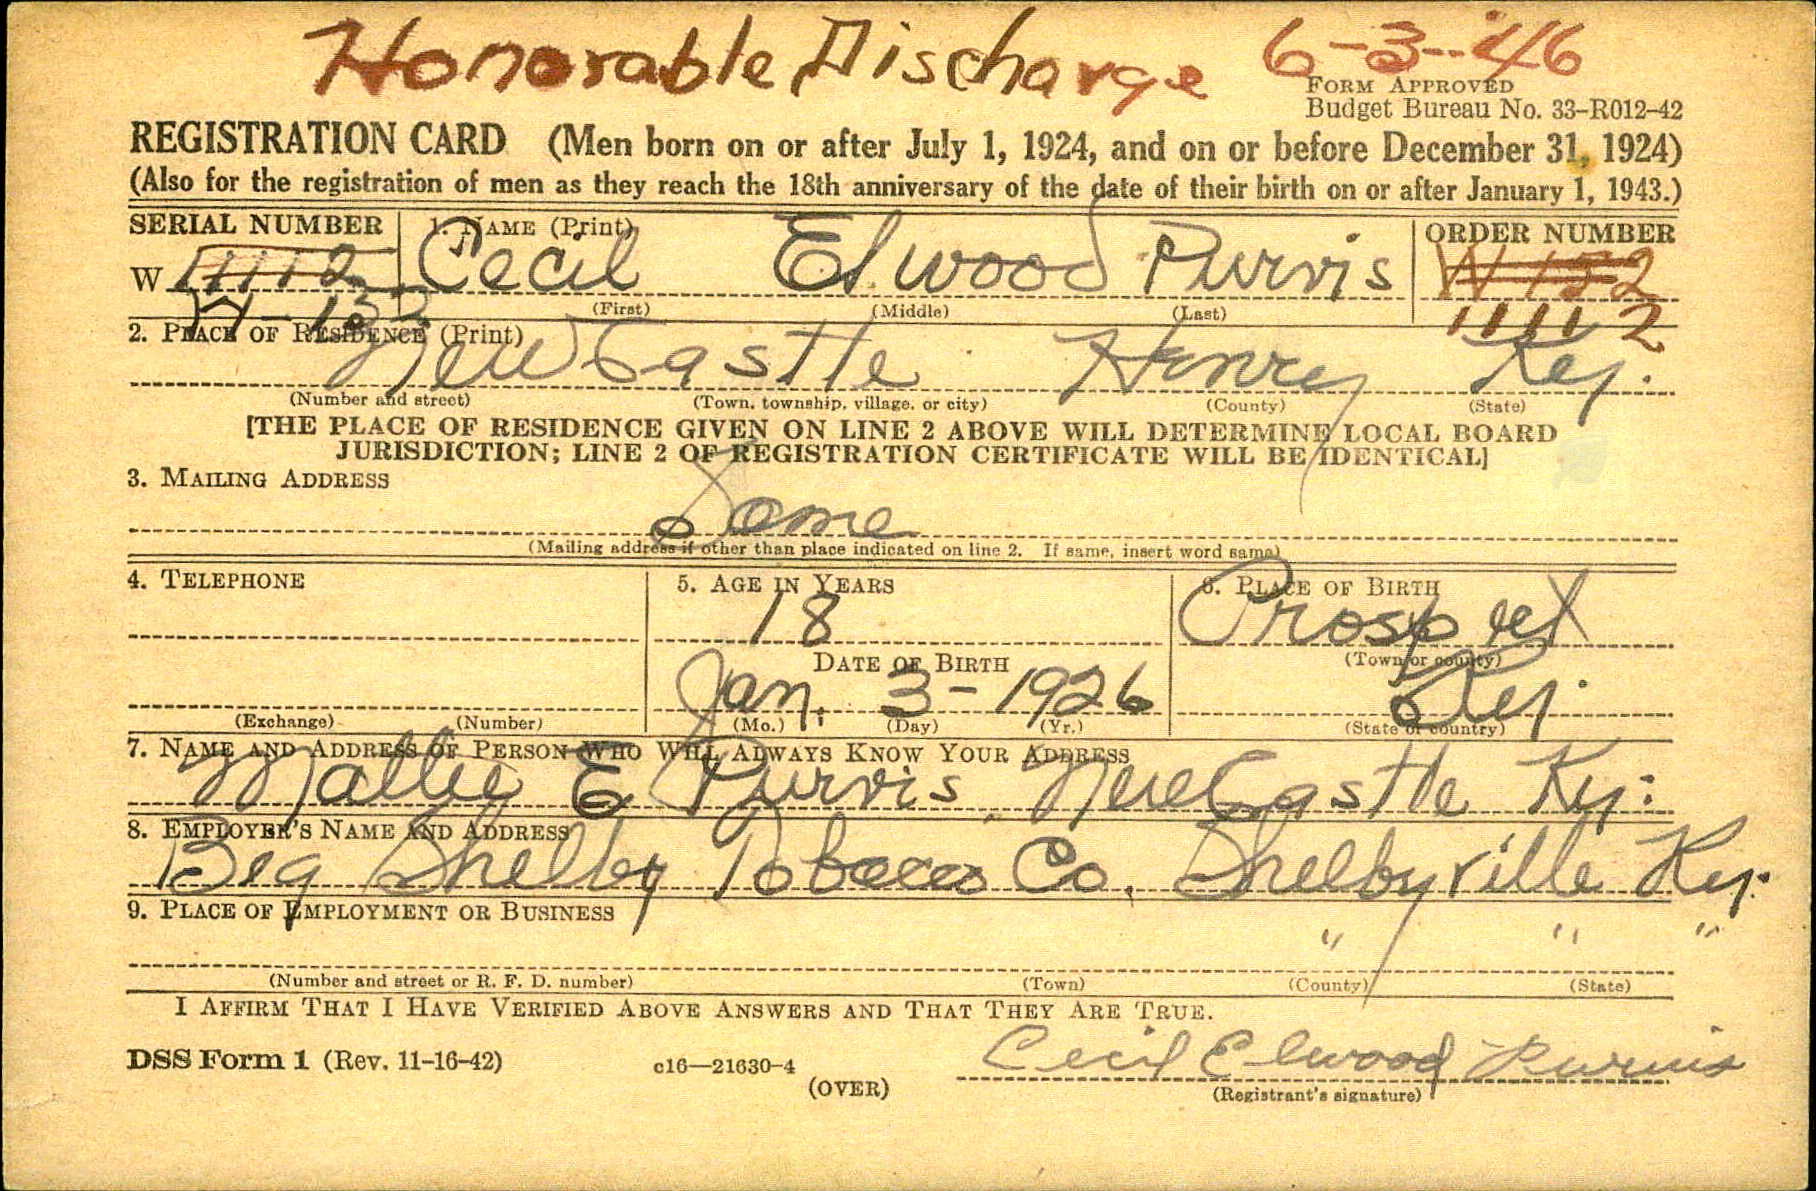 Honorable Discharge 6-3-46
FORM APPROVED
Budget Bureau No. 33-R012-42
REGISTRATION CARD (Men born on or after July 1, 1924, and on or before December 31, 1924)
(Also for the registration of men as they reach the 18th anniversary of the date of their birth on or after January 1, 1943.)
SERIAL NUMBER 1. NAME (Print) ORDER NUMBER
W 11112 Cecil Elwood Purvis W 152
(First) (Middle) (Last)
W-132 11112
2. PLACE OF RESIDENCE (Print)
New Castle Henry Ky.
(Number and street) (Town, township, village, or city) (County) (State)
[THE PLACE OF RESIDENCE GIVEN ON LINE 2 ABOVE WILL DETERMINE LOCAL BOARD
JURISDICTION; LINE 2 OF REGISTRATION CERTIFICATE WILL BE IDENTICAL]
3. MAILING ADDRESS
Same
(Mailing address if other than place indicated on line 2. If same, insert word same)
4. TELEPHONE 5. AGE IN YEARS 6. PLACE OF BIRTH
18 Prospect
DATE OF BIRTH (Town or county)
Jan. 3-1926 Ky.
(Exchange) (Number) (Mo.) (Day) (Yr.) (State or country)
7. NAME AND ADDRESS OF PERSON WHO WILL ALWAYS KNOW YOUR ADDRESS
Mallie E Purvis New Castle Ky.
8. EMPLOYER'S NAME AND ADDRESS
Big Shelby Tobacco Co. Shelbyville Ky.
9. PLACE OF EMPLOYMENT OR BUSINESS
" " "
(Number and street or R. F. D. number) (Town) (County) (State)
I AFFIRM THAT I HAVE VERIFIED ABOVE ANSWERS AND THAT THEY ARE TRUE.
DSS Form 1 (Rev. 11-16-42) c16—21630-4 Cecil Elwood Purvis
(OVER) (Registrant's signature)